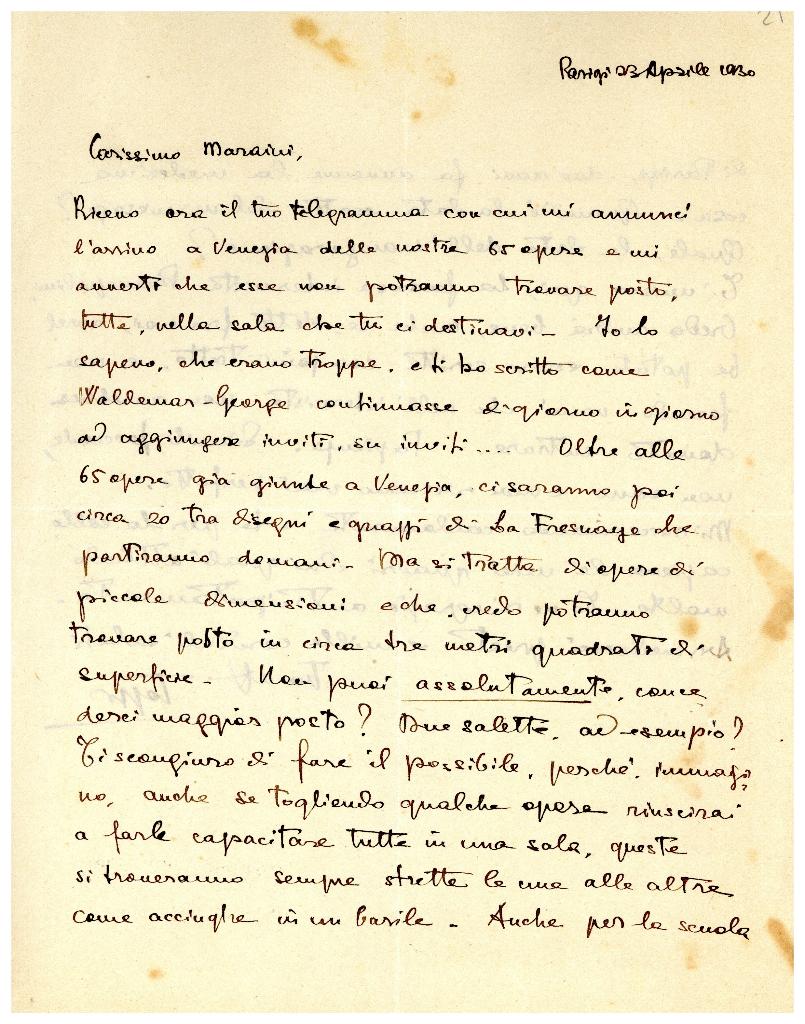 21
Parigi 23 Aprile 1930
Carissimo Maraini,
Ricevo ora il tuo telegramma con cui mi annunci
l'arrivo a Venezia delle nostre 65 opere e mi
avverti che esse non potranno trovare posto,
tutte, nella sala che tu ci destinavi - Io lo
sapevo, che erano troppe, e ti ho scritto come
Waldemar-George continuasse di giorno in giorno
ad aggiungere inviti, su inviti .... Oltre alle
65 opere già giunte a Venezia, ci saranno poi
circa 20 tra disegni e guazzi di La Fresnaye che
partiranno domani - Ma si tratta di opere di
piccole dimensioni e che, credo potranno
trovare posto in circa tre metri quadrati di
superficie - Non puoi assolutamente, conce
derci maggior posto? Due salette, ad esempio?
Ti scongiuro di fare il possibile, perché, immagi
no, anche se togliendo qualche opera riuscirai
a farle capacitare tutte in una sala, queste
si troveranno sempre strette le une alle altre
come acciughe in un barile - Anche per la scuola